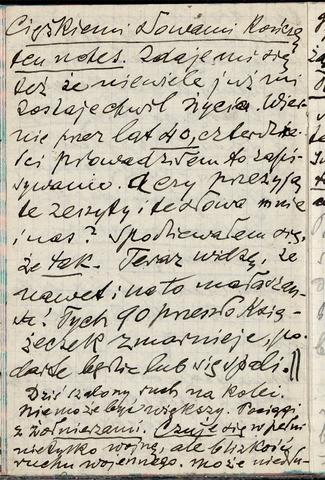 Ciężkiemi słowami kończę
ten notes. Zdaje mi się
też że niewiele już mi
zostaje chwil życia. Wier-
nie przez lat 40, czterdzie-
ści prowadziłem to zapi-
sywanie. Czy przeżyją
te zeszyty i te słowa mnie
i nas? Spodziewałem się,
że tak. Teraz widzę, że
nawet i na to mała szan-
sa! Tych 90 przeszło książ-
żeczek zmarnieje, po-
darte będzie lub się spali.
Dziś szalony ruch na kolei.
Nie może być większy. Pociągi
z żołnierzami. Czuje się w pełni
nie tylko wojnę, ale bliskość
ruchu wojennego. Może